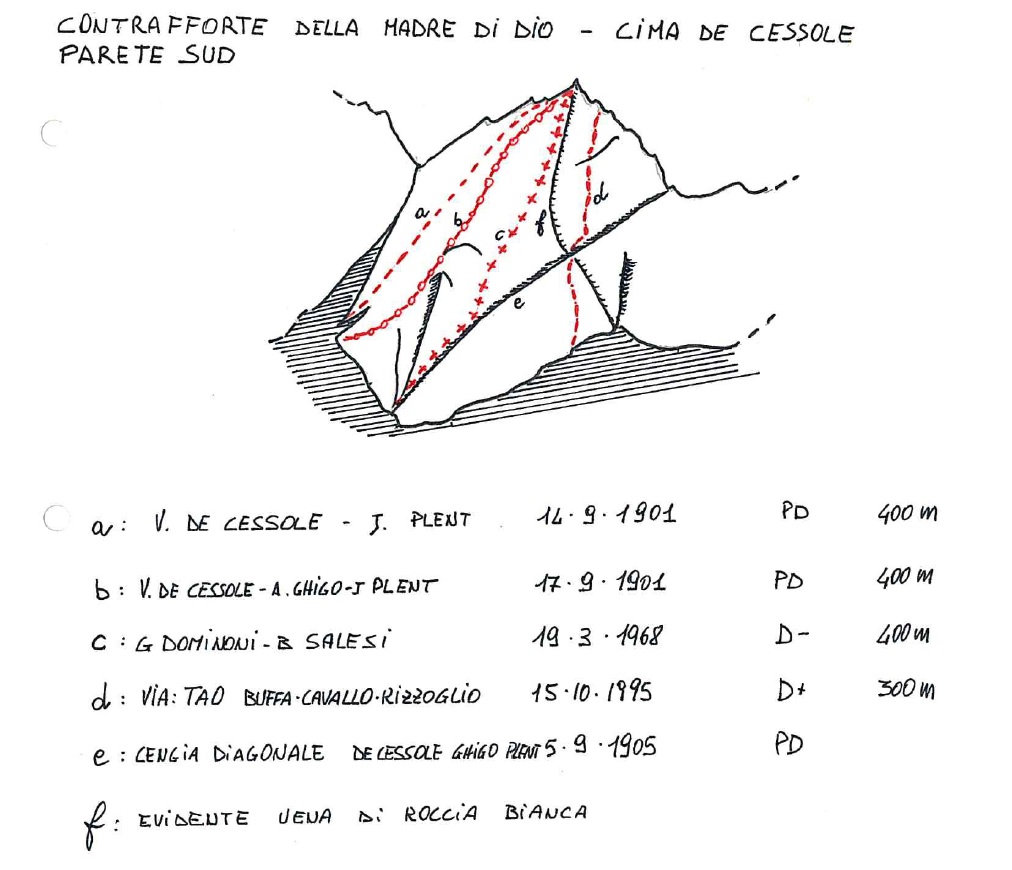 CONTRAFFORTE DELLA MADRE DI DIO - CIMA DE CESSOLE
PARETE SUD
a
b
c
f
d
e
a: V. DE CESSOLE - J. PLENT 14·9·1901 PD 400 m
b: V. DE CESSOLE - A. GHIGO - J PLENT 17·9·1901 PD 400 m
C: G DOMINONI - B SALESI 19·3·1968 D- 400 m
d: VIA: TAO BUFFA·CAVALLO·RIZZOGLIO 15·10·1995 D+ 300 m
e: CENGIA DIAGONALE DE CESSOLE GHIGO PLENT 5·9·1905 PD
f: EVIDENTE VENA DI ROCCIA BIANCA